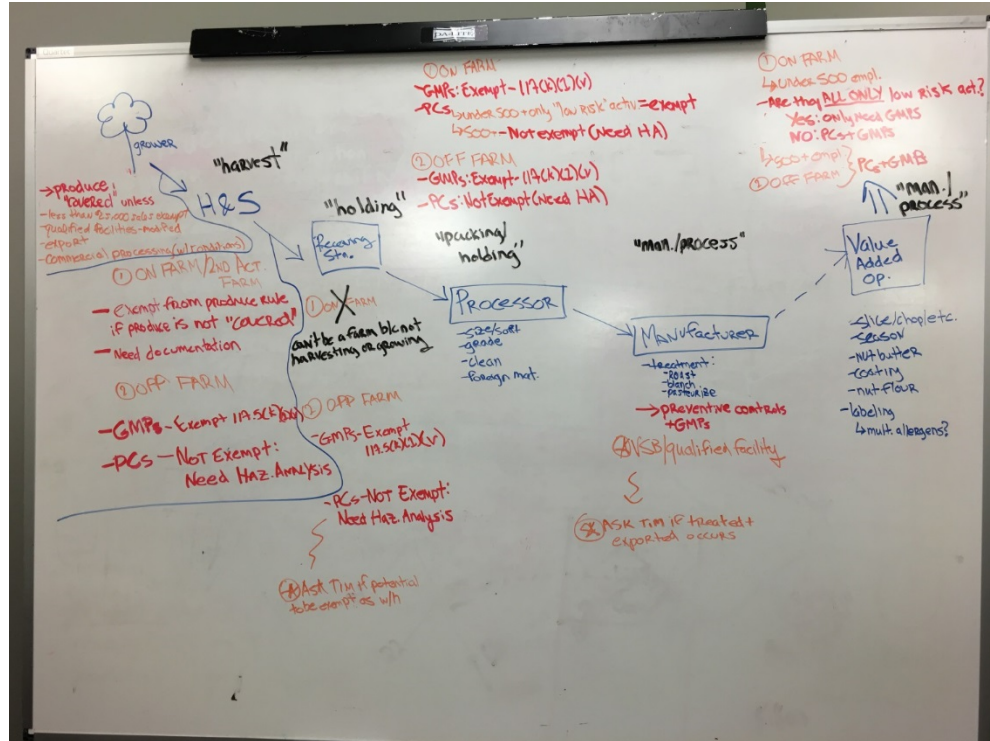 DA-LITE
grower
→produce:
"covered" unless
-less than 25,000 sales exempt
-qualified facilities-modified
-export
-commercial processing (w/ conditions)
"harvest"
H&S
① ON FARM/2ND ACT.
FARM
- Exempt from produce rule
if produce is not "covered"
- Need documentation
② OFF FARM
-GMPs - Exempt 117.5(k)
-PCs - NOT Exempt:
Need Haz. Analysis
"holding"
Receiving
Stn.
① ON FARM
can't be a farm b/c not
harvesting or growing
② OFF FARM
-GMPs-Exempt
117.5(k)(1)(v)
-PCs-NOT Exempt:
Need Haz. Analysis
ASK TIM if potential
to be exempt as w/h
① ON FARM
-GMPs: Exempt - 117(k)(1)(v)
-PCs ↳under 500 + only "low risk" activ = exempt
↳500+ - Not exempt (Need HA)
② OFF FARM
-GMPs: Exempt - 117(k)(1)(v)
-PCs: Not Exempt (Need HA)
"packing/
holding"
PROCESSOR
-size/sort
-grade
-clean
-foreign mat.
"man./process"
MANufacturer
-treatment:
-roast
-blanch
-pasteurize
→preventive controls
+GMPs
VSB/qualified facility
ASK TIM if treated +
exported occurs
① ON FARM
↳under 500 empl.
-Are they ALL ONLY low risk act.?
Yes: only Need GMPs
NO: PCs + GMPs
↳500+ empl.
② OFF FARM } PCs+GMB
"man./
process"
Value
Added
Op.
-slice/chop/etc.
-season
-nut butter
-coating
-nut flour
-labeling
↳mult. allergens?